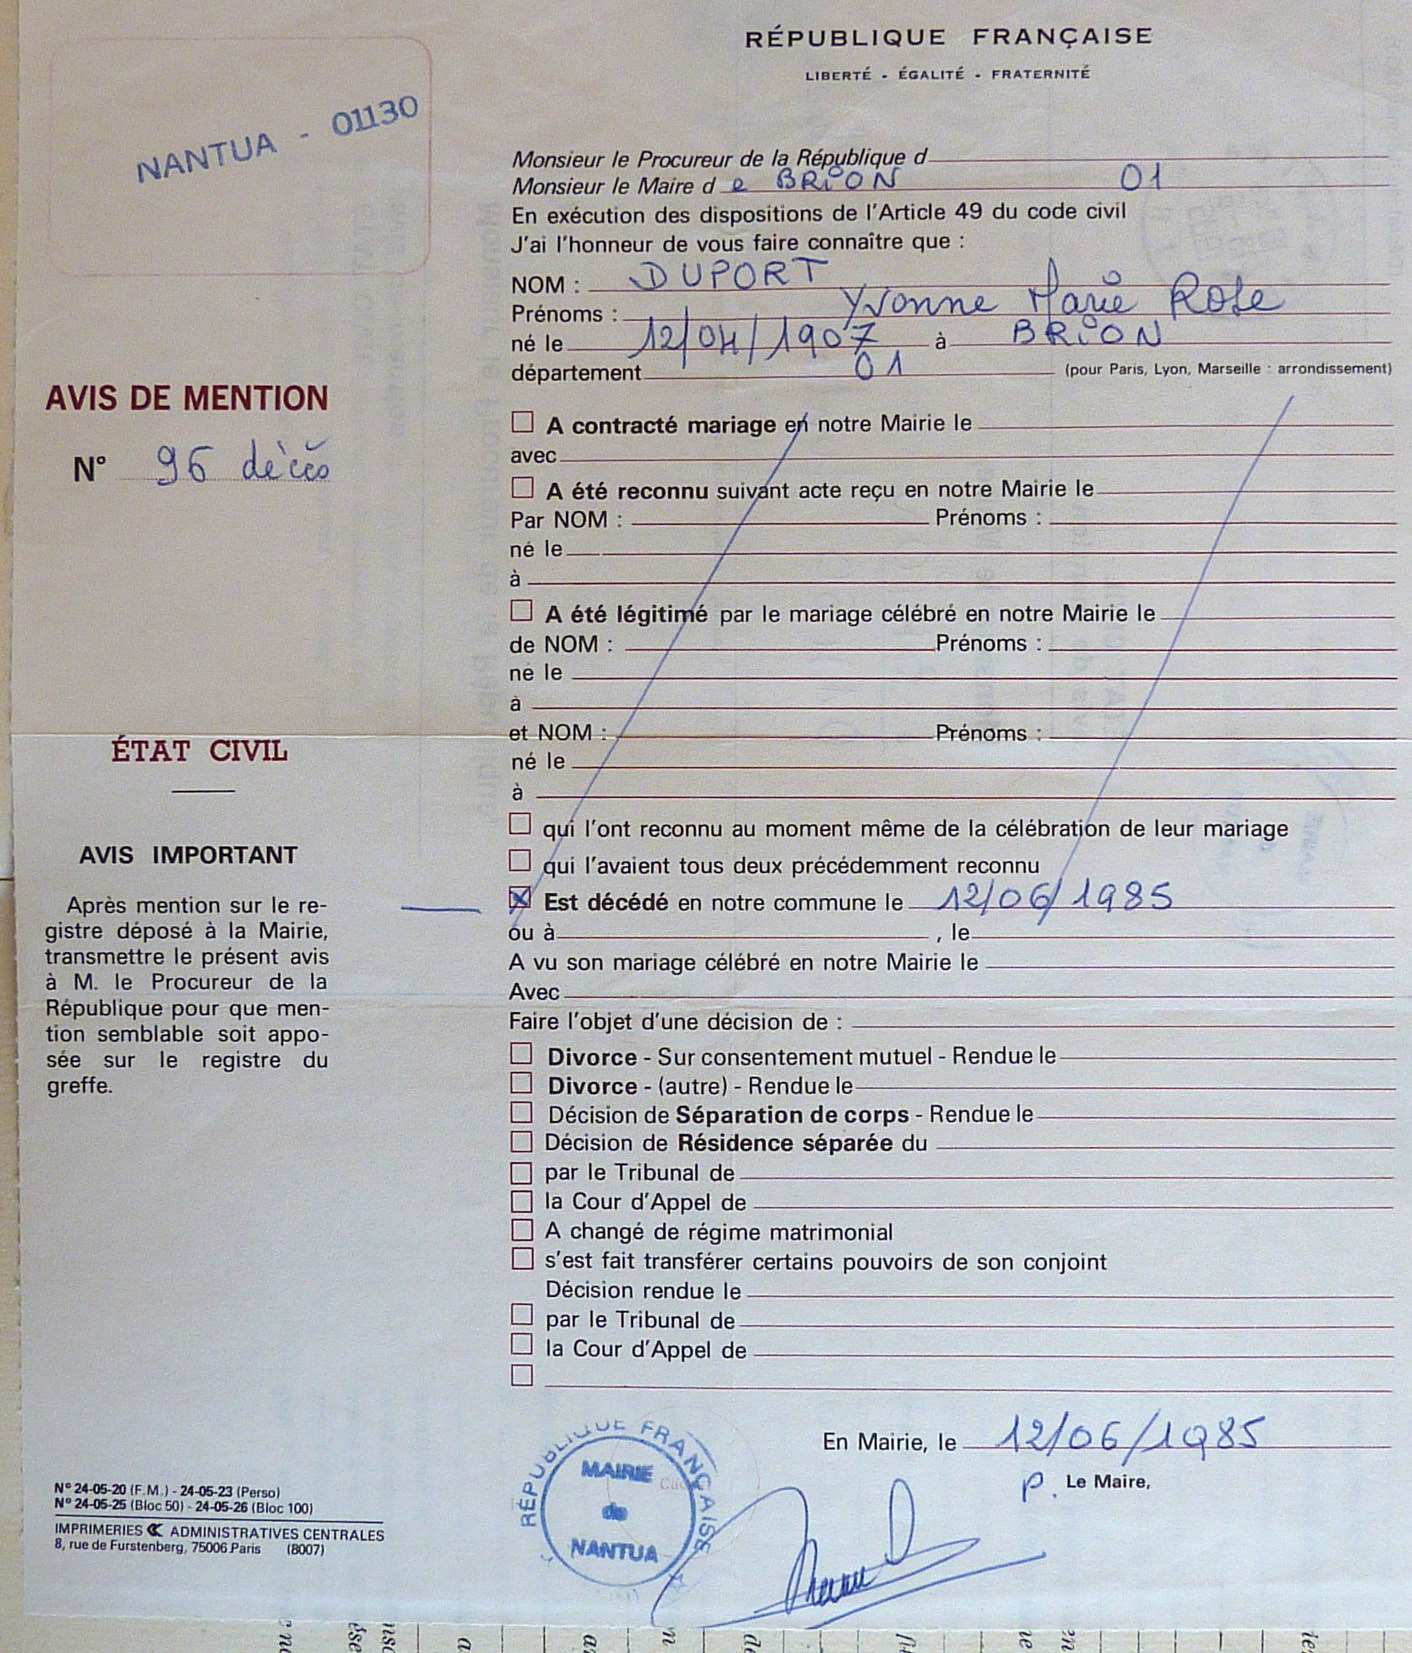 RÉPUBLIQUE FRANÇAISE
LIBERTÉ - ÉGALITÉ - FRATERNITÉ
NANTUA - 01130
Monsieur le Procureur de la République d
Monsieur le Maire de BRION 01
En exécution des dispositions de l'Article 49 du code civil
J'ai l'honneur de vous faire connaître que :
NOM : DUPORT
Prénoms : Yvonne Marie Rose
né le 12/04/1907 à BRION
département 01 (pour Paris, Lyon, Marseille : arrondissement)
AVIS DE MENTION
N° 96 décès
A contracté mariage en notre Mairie le
avec
A été reconnu suivant acte reçu en notre Mairie le
Par NOM : Prénoms :
né le
à
A été légitimé par le mariage célébré en notre Mairie le
de NOM : Prénoms :
né le
à
et NOM : Prénoms :
né le
à
qui l'ont reconnu au moment même de la célébration de leur mariage
qui l'avaient tous deux précédemment reconnu
Est décédé en notre commune le 12/06/1985
ou à , le
A vu son mariage célébré en notre Mairie le
Avec
Faire l'objet d'une décision de :
Divorce - Sur consentement mutuel - Rendue le
Divorce - (autre) - Rendue le
Décision de Séparation de corps - Rendue le
Décision de Résidence séparée du
par le Tribunal de
la Cour d'Appel de
A changé de régime matrimonial
s'est fait transférer certains pouvoirs de son conjoint
Décision rendue le
par le Tribunal de
la Cour d'Appel de
ÉTAT CIVIL
AVIS IMPORTANT
Après mention sur le re-
gistre déposé à la Mairie,
transmettre le présent avis
à M. le Procureur de la
République pour que men-
tion semblable soit appo-
sée sur le registre du
greffe.
En Mairie, le 12/06/1985
P. Le Maire,
RÉPUBLIQUE FRANÇAISE
MAIRIE
de
NANTUA
N° 24-05-20 (F.M.) - 24-05-23 (Perso)
N° 24-05-25 (Bloc 50) - 24-05-26 (Bloc 100)
IMPRIMERIES ADMINISTRATIVES CENTRALES
8, rue de Furstenberg, 75006 Paris (8007)